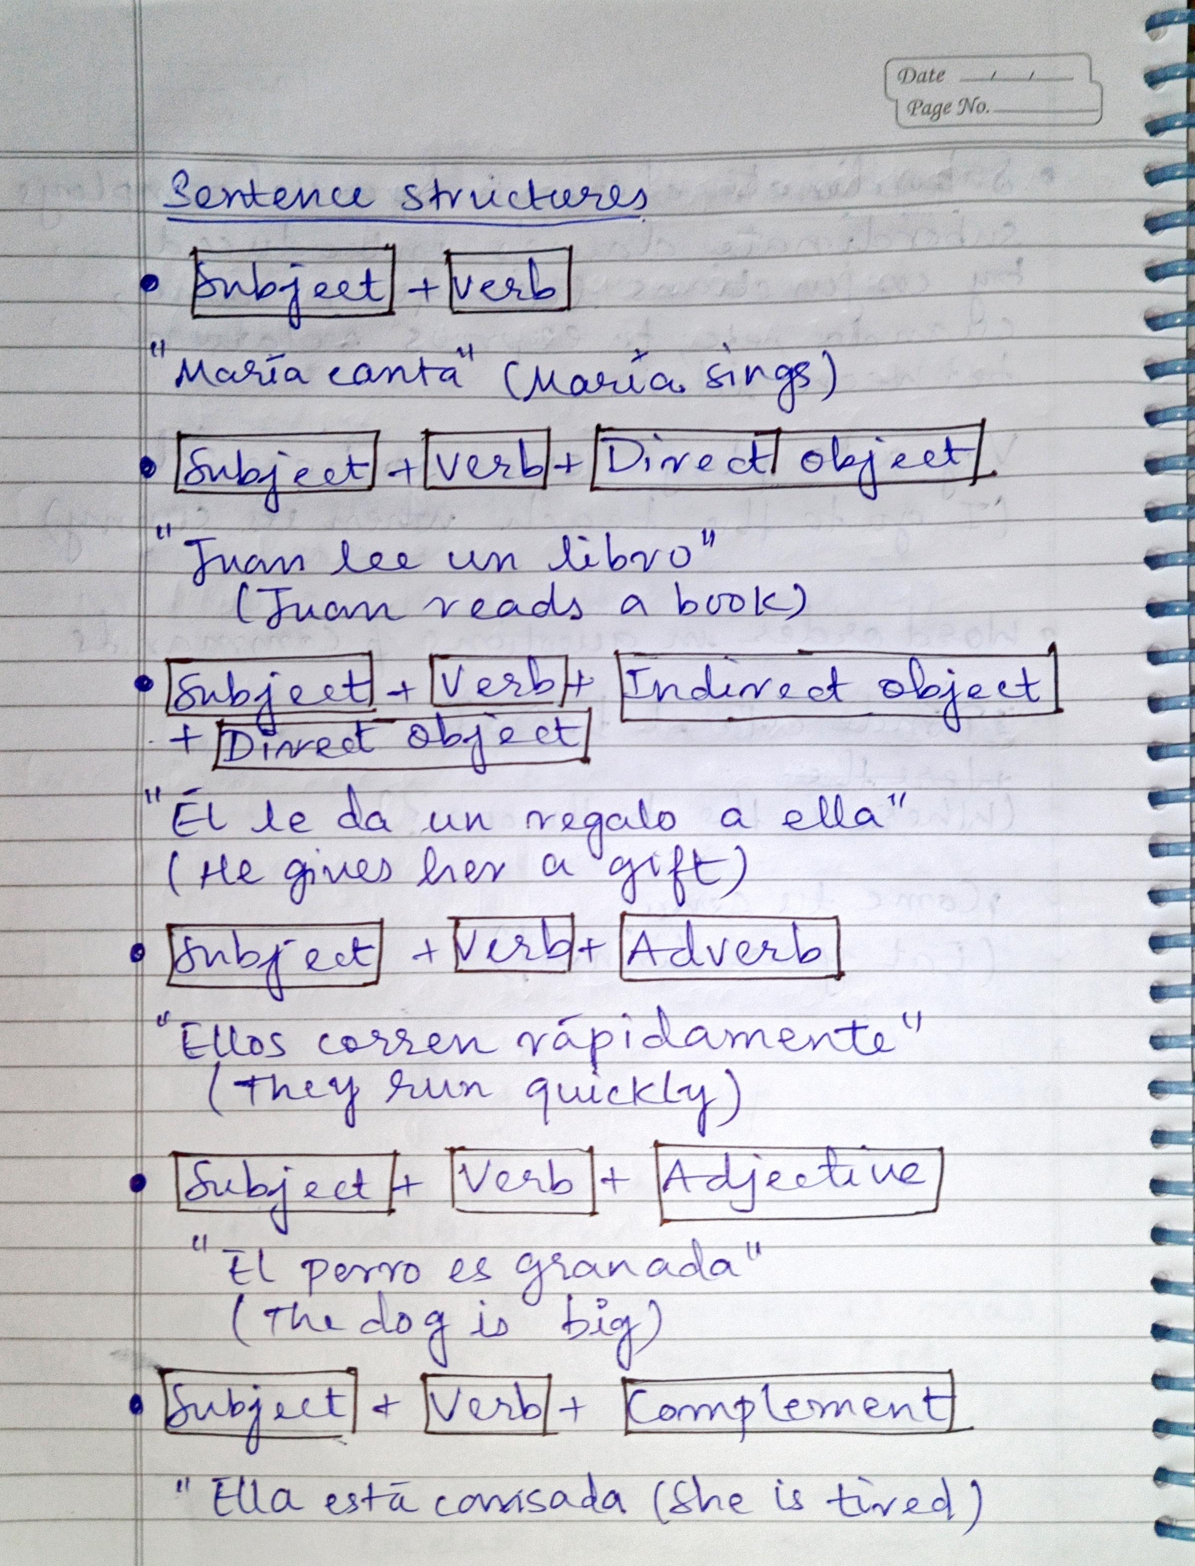 Date __/__/__
Page No.
Sentence structures
• Subject + Verb
"María canta" (María sings)
• Subject + Verb + Direct object
"Juan lee un libro"
(Juan reads a book)
• Subject + Verb + Indirect object
+ Direct object
"Él le da un regalo a ella"
(He gives her a gift)
• Subject + Verb + Adverb
"Ellos corren rápidamente"
(They run quickly)
• Subject + Verb + Adjective
"El perro es granada"
(The dog is big)
• Subject + Verb + Complement
"Ella está cansada (She is tired)